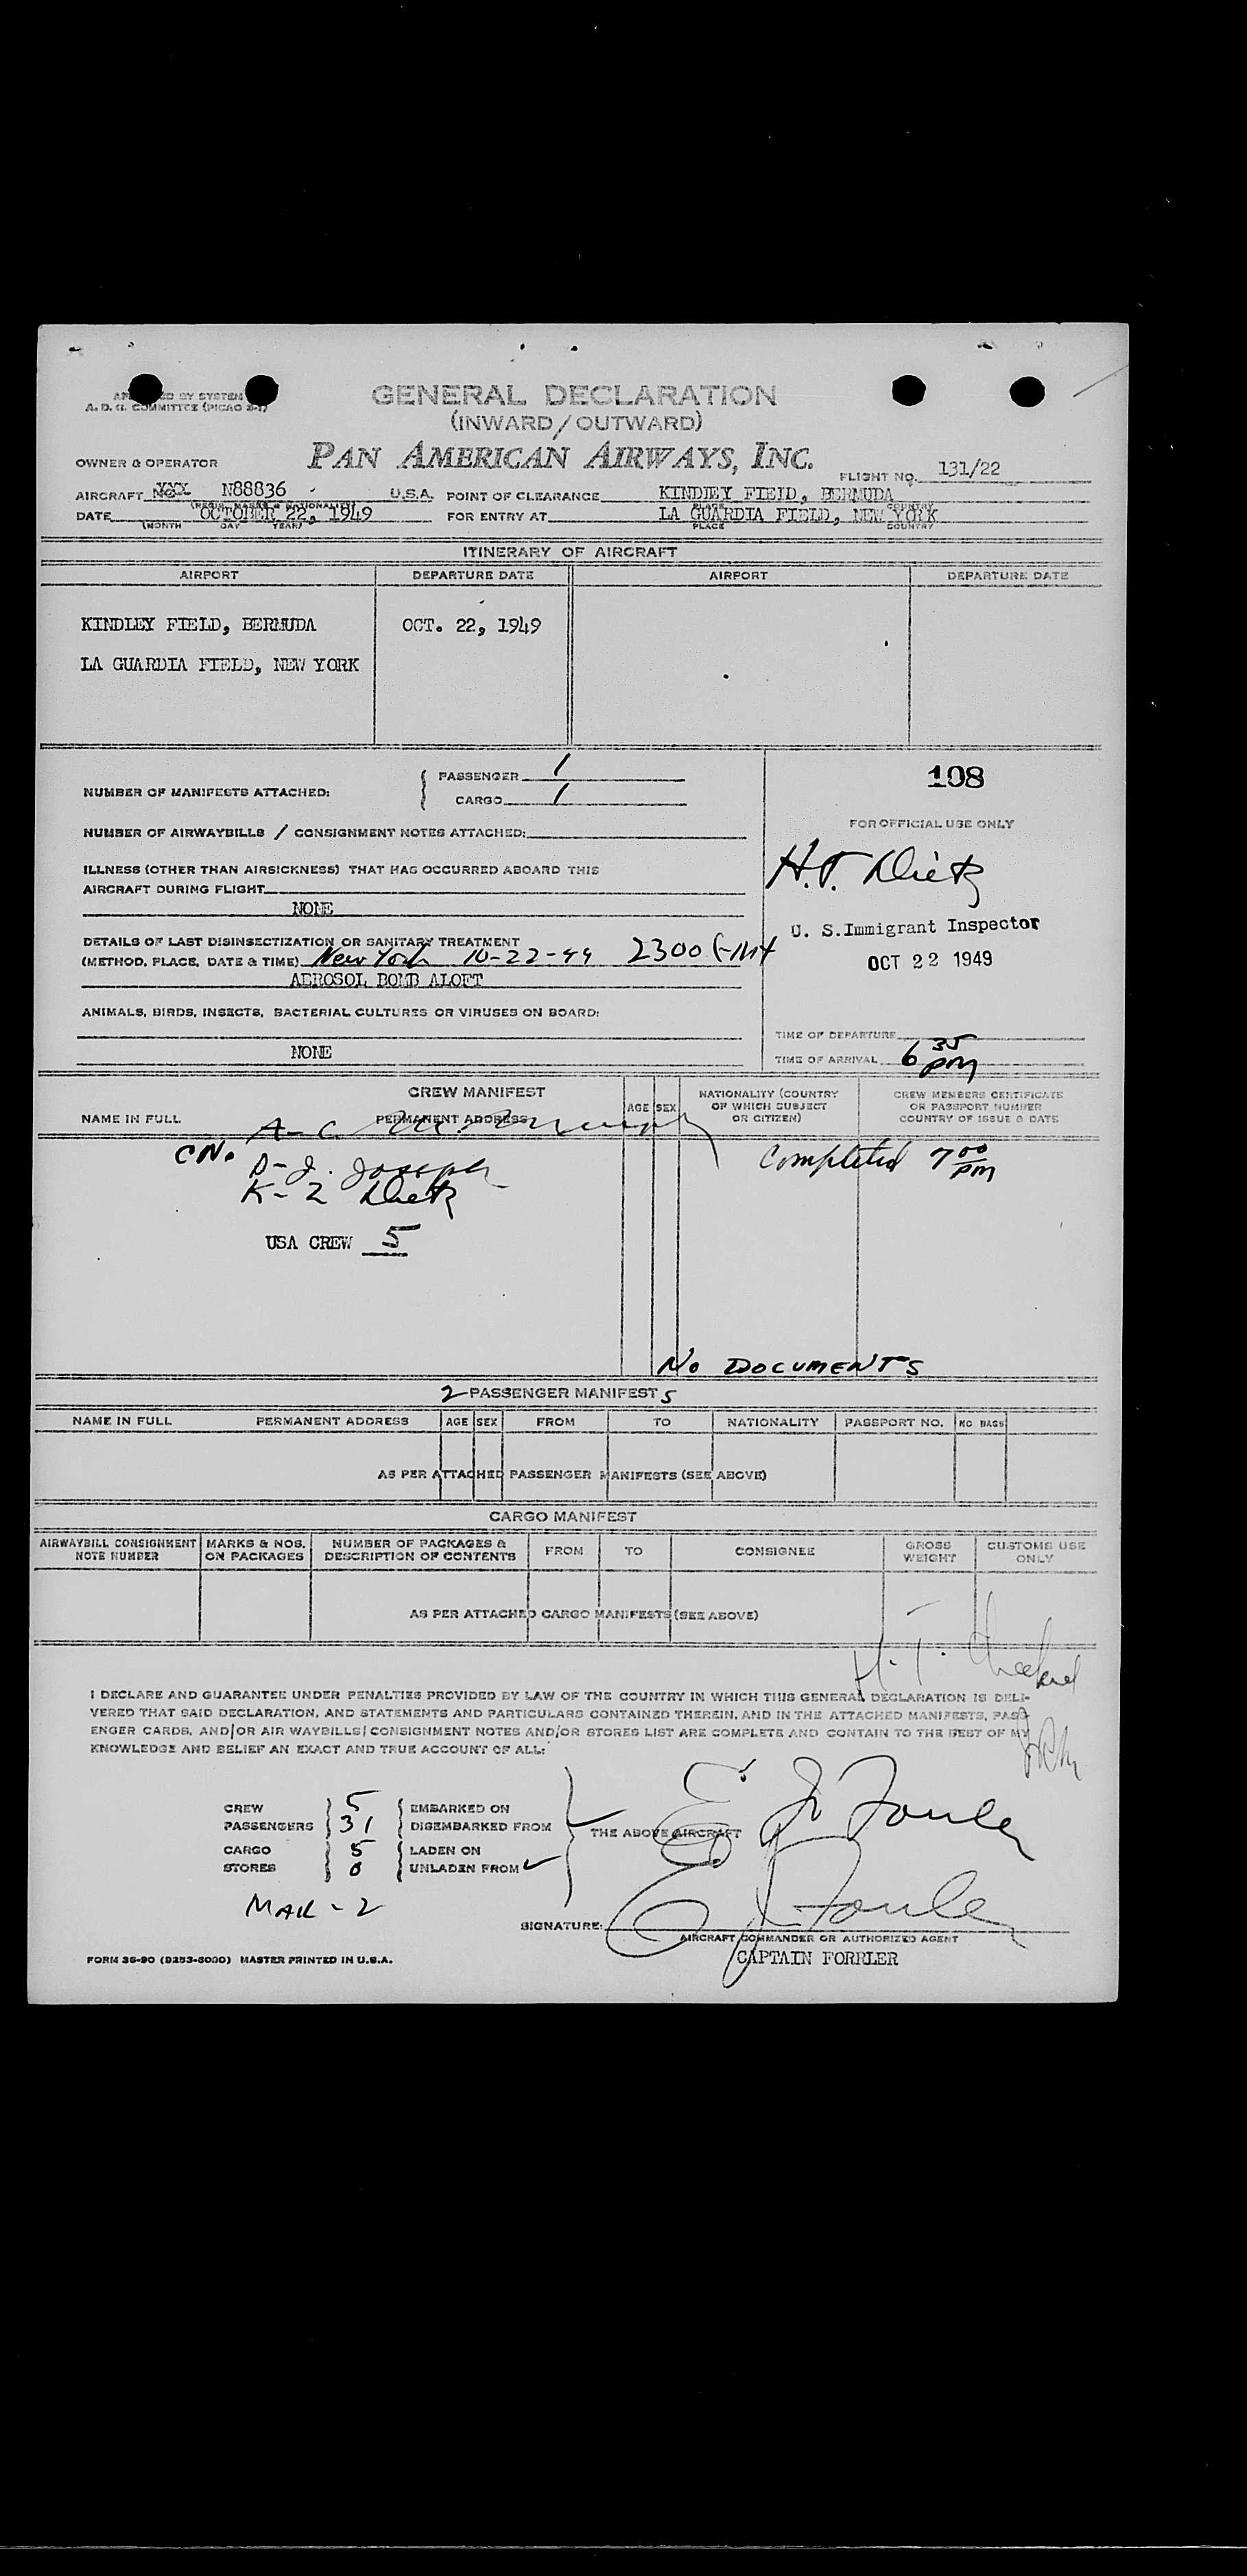 GENERAL DECLARATION
(INWARD/OUTWARD)
BY SYSTEM
A. D. R. COMMITTEE (PICAO 2-1)
PAN AMERICAN AIRWAYS, INC.
OWNER & OPERATOR
FLIGHT NO. 131/22
AIRCRAFT NO. XXX N88836 U.S.A. POINT OF CLEARANCE KINDLEY FIELD, BERMUDA
DATE OCTOBER 22, 1949 FOR ENTRY AT LA GUARDIA FIELD, NEW YORK
(MONTH DAY YEAR) PLACE COUNTRY
ITINERARY OF AIRCRAFT
AIRPORT DEPARTURE DATE AIRPORT DEPARTURE DATE
KINDLEY FIELD, BERMUDA OCT. 22, 1949
LA GUARDIA FIELD, NEW YORK
NUMBER OF MANIFESTS ATTACHED: PASSENGER 1
CARGO 1
108
NUMBER OF AIRWAYBILLS / CONSIGNMENT NOTES ATTACHED:
FOR OFFICIAL USE ONLY
H.T. Dietz
ILLNESS (OTHER THAN AIRSICKNESS) THAT HAS OCCURRED ABOARD THIS
AIRCRAFT DURING FLIGHT
NONE
U. S. Immigrant Inspector
OCT 22 1949
DETAILS OF LAST DISINSECTIZATION OR SANITARY TREATMENT
(METHOD, PLACE, DATE & TIME) New York 10-22-49 2300 GMT
AEROSOL BOMB ALOFT
ANIMALS, BIRDS, INSECTS, BACTERIAL CULTURES OR VIRUSES ON BOARD:
NONE
TIME OF DEPARTURE
TIME OF ARRIVAL 6 35 pm
CREW MANIFEST
NAME IN FULL PERMANENT ADDRESS AGE SEX NATIONALITY (COUNTRY OF WHICH SUBJECT OR CITIZEN) CREW MEMBERS CERTIFICATE OR PASSPORT NUMBER COUNTRY OF ISSUE & DATE
A-C
CN. D-J. Joseph
K-Z Dietz
Completed 7 00 pm
USA CREW 5
No DOCUMENTS
2 PASSENGER MANIFEST S
NAME IN FULL PERMANENT ADDRESS AGE SEX FROM TO NATIONALITY PASSPORT NO. NO BAGS
AS PER ATTACHED PASSENGER MANIFESTS (SEE ABOVE)
CARGO MANIFEST
AIRWAYBILL CONSIGNMENT NOTE NUMBER MARKS & NOS. ON PACKAGES NUMBER OF PACKAGES & DESCRIPTION OF CONTENTS FROM TO CONSIGNEE GROSS WEIGHT CUSTOMS USE ONLY
AS PER ATTACHED CARGO MANIFESTS (SEE ABOVE)
I DECLARE AND GUARANTEE UNDER PENALTIES PROVIDED BY LAW OF THE COUNTRY IN WHICH THIS GENERAL DECLARATION IS DELI-
VERED THAT SAID DECLARATION, AND STATEMENTS AND PARTICULARS CONTAINED THEREIN, AND IN THE ATTACHED MANIFESTS, PASS-
ENGER CARDS, AND/OR AIR WAYBILLS/CONSIGNMENT NOTES AND/OR STORES LIST ARE COMPLETE AND CONTAIN TO THE BEST OF MY
KNOWLEDGE AND BELIEF AN EXACT AND TRUE ACCOUNT OF ALL:
CREW 5 EMBARKED ON
PASSENGERS 31 DISEMBARKED FROM
THE ABOVE AIRCRAFT
CARGO 5 LADEN ON
STORES 0 UNLADEN FROM
MAIL - 2
SIGNATURE:
AIRCRAFT COMMANDER OR AUTHORIZED AGENT
CAPTAIN FORRLER
FORM 36-90 (8253-5000) MASTER PRINTED IN U.S.A.